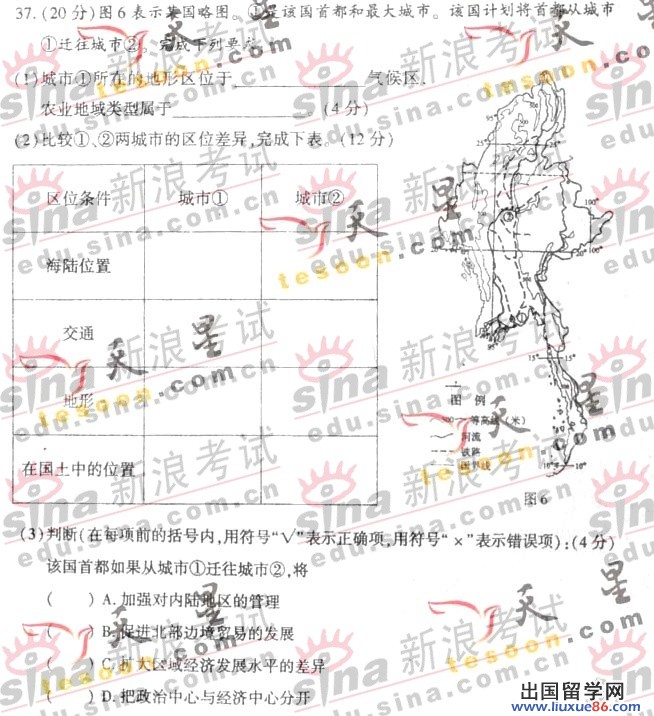 37.(20分)图6表示某国略图。①是该国首都和最大城市。该国计划将首都从城市
①迁往城市②。完成下列要求。
(1)城市①所在的地形区位于____________气候区,
农业地域类型属于____________。(4分)
(2)比较①、②两城市的区位差异,完成下表。(12分)
区位条件 城市① 城市②
海陆位置
交通
地形
在国土中的位置
图例
500 等高线(米)
河流
铁路
国界线
图6
(3)判断(在每项前的括号内,用符号“√”表示正确项,用符号“×”表示错误项):(4分)
该国首都如果从城市①迁往城市②,将
( )A.加强对内陆地区的管理
( )B.促进北部边境贸易的发展
( )C.扩大区域经济发展水平的差异
( )D.把政治中心与经济中心分开
sina 新浪考试
edu.sina.com.cn
天星
tesoon.com
出国留学网
www.liuxue86.com